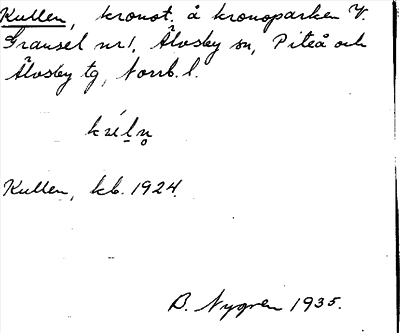 Kullen, kronot. å kronoparken V.
Gransel nr 1, Älvsby sn, Piteå och
Älvsby tg, Norrb. l.
Kullen, kb. 1924.
B. Nygren 1935.